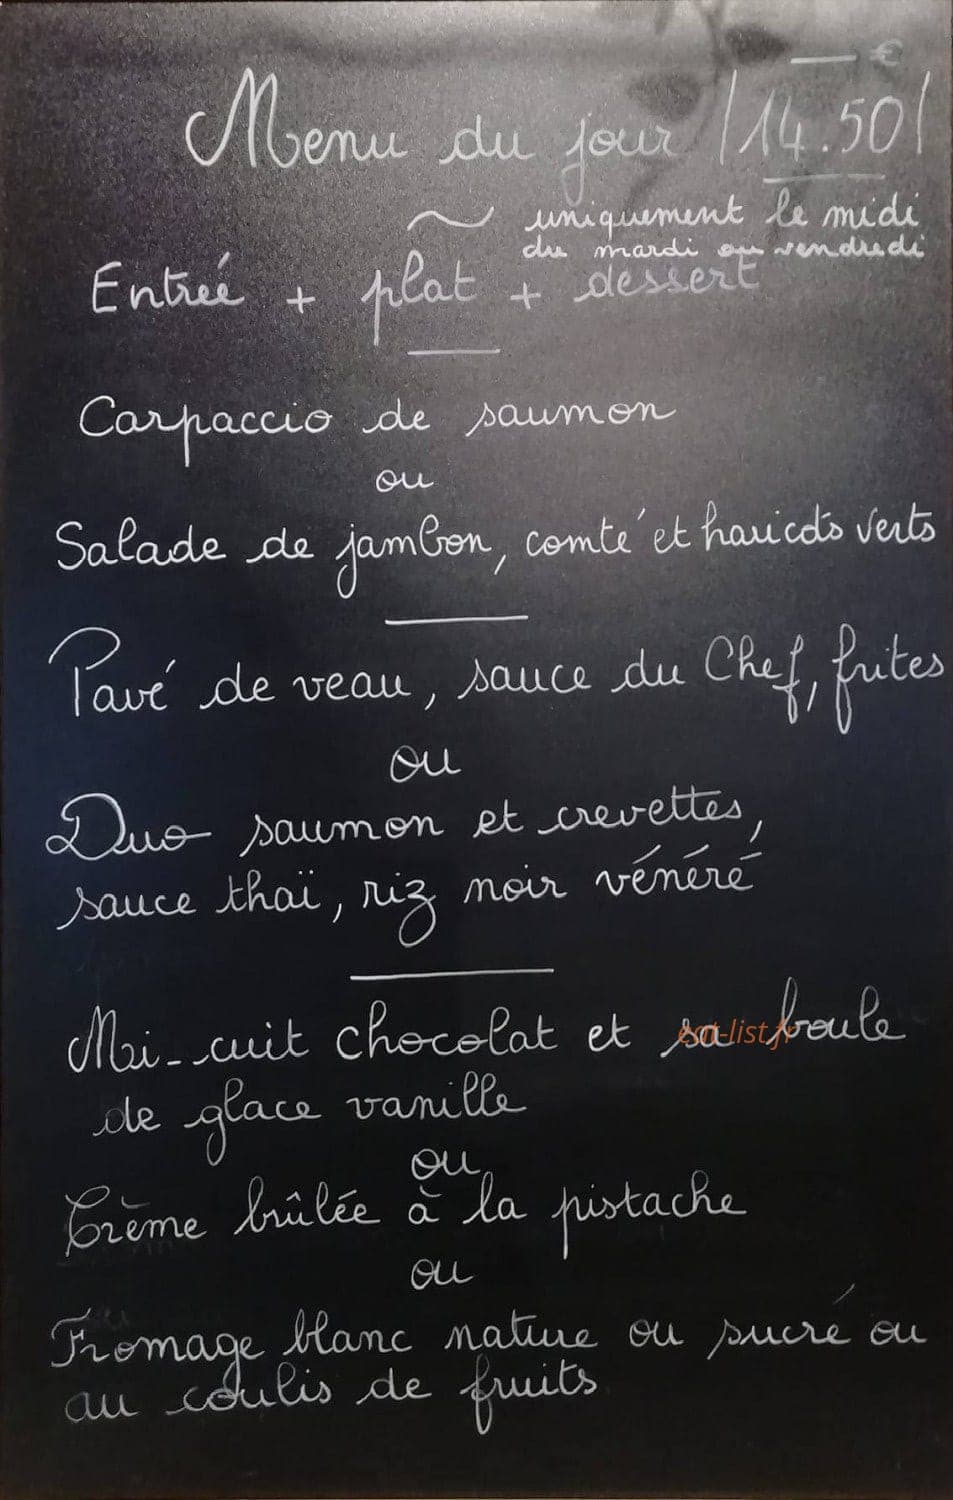 €
Menu du jour 14.50
uniquement le midi
du mardi au vendredi
Entrée + plat + dessert
Carpaccio de saumon
ou
Salade de jambon, comté et haricots verts
Pavé de veau, sauce du Chef, frites
ou
Duo saumon et crevettes,
sauce thaï, riz noir vénéré
Mi-cuit chocolat et sa boule
eat-list.fr
de glace vanille
ou
Crème brûlée à la pistache
ou
Fromage blanc nature ou sucré ou
au coulis de fruits